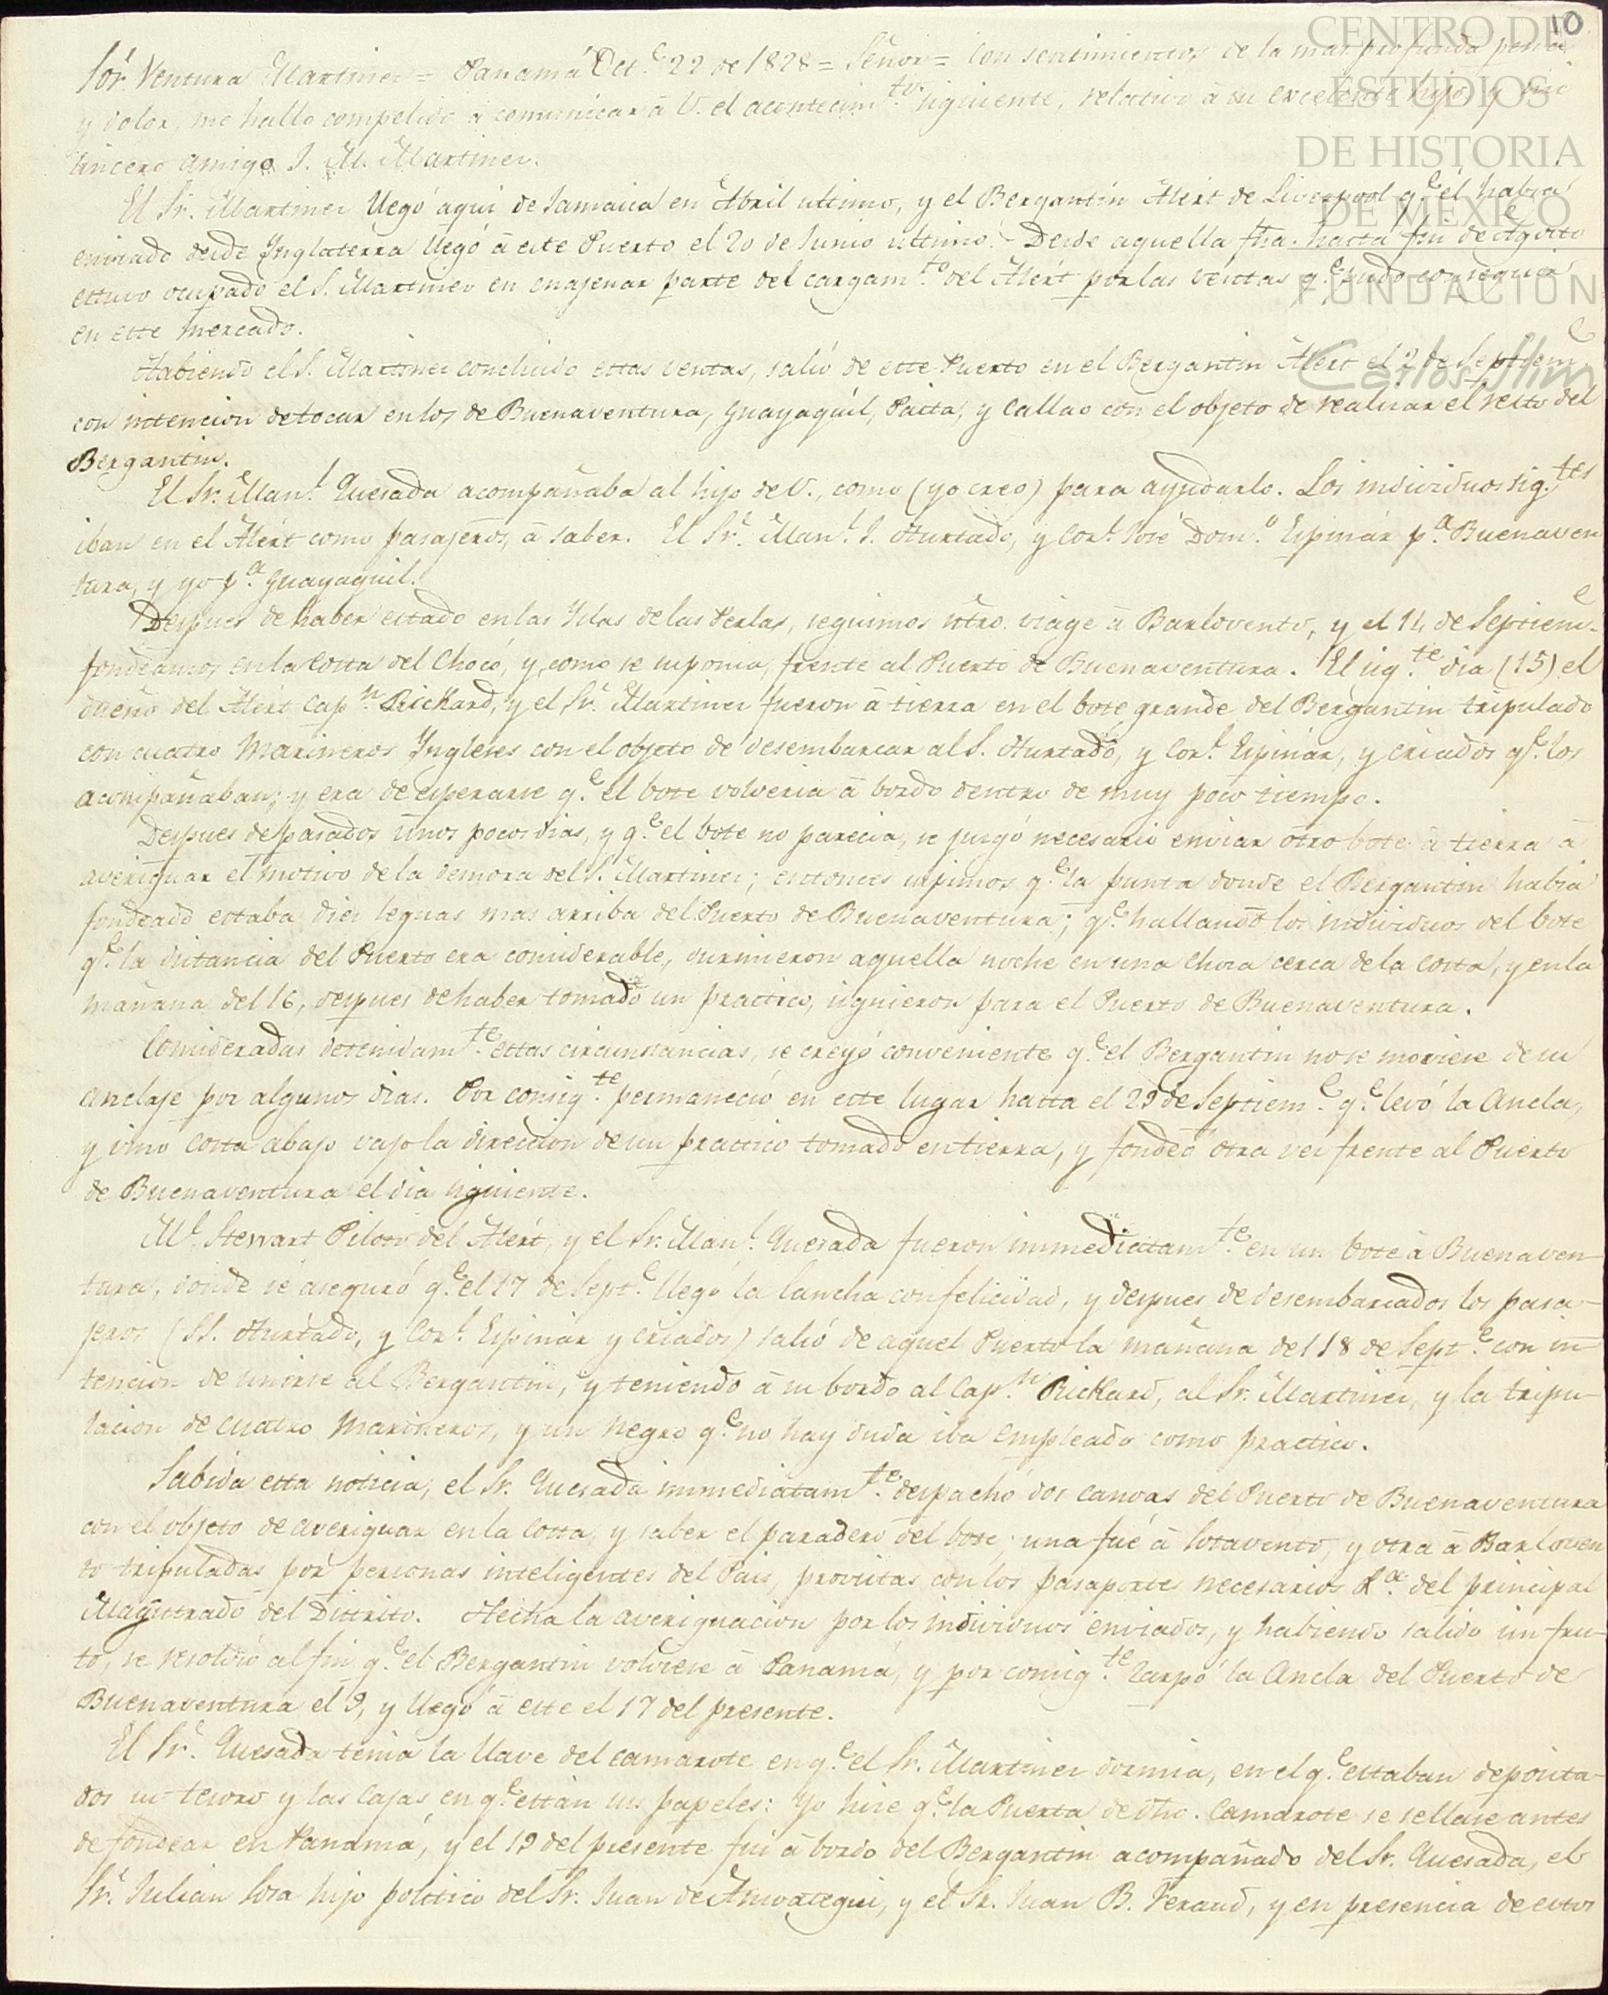 10
CENTRO DE
ESTUDIOS
DE HISTORIA
DE MÉXICO
FUNDACIÓN
Carlos Slim
Sór. Ventura Martinez = Panamá Oct.e 22 de 1828 = Señor = Con sentimientos de la mas profunda pena
y dolor, me hallo compelido a comunicar à V. el acontecim.to siguiente, relativo à su excelente hijo, y mio
sincero amigo J. M. Martinez.
El Sr. Martinez llegó aqui de Jamaica en Abril ultimo, y el Bergantin Alert de Liverpool q.e él habia
enviado desde Ynglaterra llegó à este Puerto el 20 de Junio ultimo. - Desde aquella fha. hasta fin de Agosto
estuvo ocupado el S. Martinez en enajenar parte del cargam.to del Alért por las ventas q.e pudo conseguir
en este mercado.
Habiendo el S. Martinez concluido estas ventas, salió de este Puerto en el Bergantin Alert el 2 de Septiem.e
con intencion de tocar en los de Buenaventura, Guayaquil, Paita, y Callao con el objeto de realizar el resto del
Bergantin.
El Sr. Man.l Quesada acompañaba al hijo de V., como (yo creo) para ayudarlo. Los individuos sig.tes
iban en el Alért como pasajeros, à saber. El Sr. Man.l J. Hurtado, y Cor.l José Dom.o Espinár p.a Buenaven
tura, y yo p.a Guayaquil.
Despues de haber estado en las Yslas de las Perlas, seguimos ntro. viage à Barlovento, y el 14 de Septiem.e
fondeamos en la Costa del Chocó, y, como se suponia, frente al Puerto de Buenaventura. El sig.te dia (15) el
dueño del Alért Cap.n Rickard, y el Sr. Martinez fueron à tierra en el bote grande del Bergantin tripulado
con cuatro Marineros Yngleses con el objeto de desembarcar al S. Hurtado, y Cor.l Espinar, y criados q.e los
acompañaban; y era de esperarse q.e el bote volveria à bordo dentro de muy poco tiempo.
Despues de pasados unos pocos dias, y q.e el bote no parecia, se juzgó necesario enviar otro bote à tierra à
averiguar el motivo de la demora del S. Martinez; entonces supimos q.e la punta donde el Bergantin habia
fondeado estaba diez leguas mas arriba del Puerto de Buenaventura; q.e hallando los individuos del bote
q.e la distancia del Puerto era considerable, durmieron aquella noche en una choza cerca de la costa, y en la
mañana del 16, despues de haber tomado un practico, siguieron para el Puerto de Buenaventura.
Consideradas detenidam.te estas circunstancias, se creyó conveniente q.e el Bergantin no se moviese de su
anclaje por algunos dias. Por consig.te permaneció en este lugar hasta el 29 de Septiem.e q.e levó la Ancla,
y vino costa abajo vajo la direccion de un practico tomado en tierra, y fondeó otra vez frente al Puerto
de Buenaventura el dia siguiente.
M.r Stewart Piloto del Alért, y el Sr. Man.l Quesada fueron immediatam.te en un bote à Buenaven-
tura, donde se aseguró q.e el 17 de Sept.e llegó la lancha con felicidad, y despues de desembarcados los pasa-
jeros (SS. Hurtado, y Cor.l Espinar y criados) salió de aquel Puerto la mañana del 18 de Sept.e con in-
tencion de unirse al Bergantin, y teniendo à su bordo al Cap.n Rickard, al Sr. Martinez, y la tripu-
lacion de cuatro Marineros, y un negro q.e no hay duda iba empleado como practico.
Sabida esta noticia, el Sr. Quesada immediatam.te despachó dos canoas del Puerto de Buenaventura
con el objeto de averiguar en la costa, y saber el paradero del bote; una fué à Sotavento, y otra à Barloven
to tripuladas por personas inteligentes del Pais, provistas con los pasaportes necesarios &.a del principal
Magistrado del Distrito. Hecha la averiguacion por los individuos enviados, y habiendo salido sin fru-
to, se resolvió al fin q.e el Bergantin volviese à Panamá, y por consig.te zarpó la Ancla del Puerto de
Buenaventura el 9, y llegó à este el 17 del presente.
El Sr. Quesada tenia la llave del camarote en q.e el Sr. Martinez dormia, en el q.e estaban deposita-
dos su tesoro y las cajas en q.e están sus papeles: Yo hice q.e la Puerta de dho. Camarote se sellase antes
de fondear en Panamá, y el 19 del presente fui à bordo del Bergantin acompañado del Sr. Quesada, el
Sr. Julian Sosa hijo politico del Sr. Juan de Ansoategui, y el Sr. Juan B. Feraud, y en presencia de estos